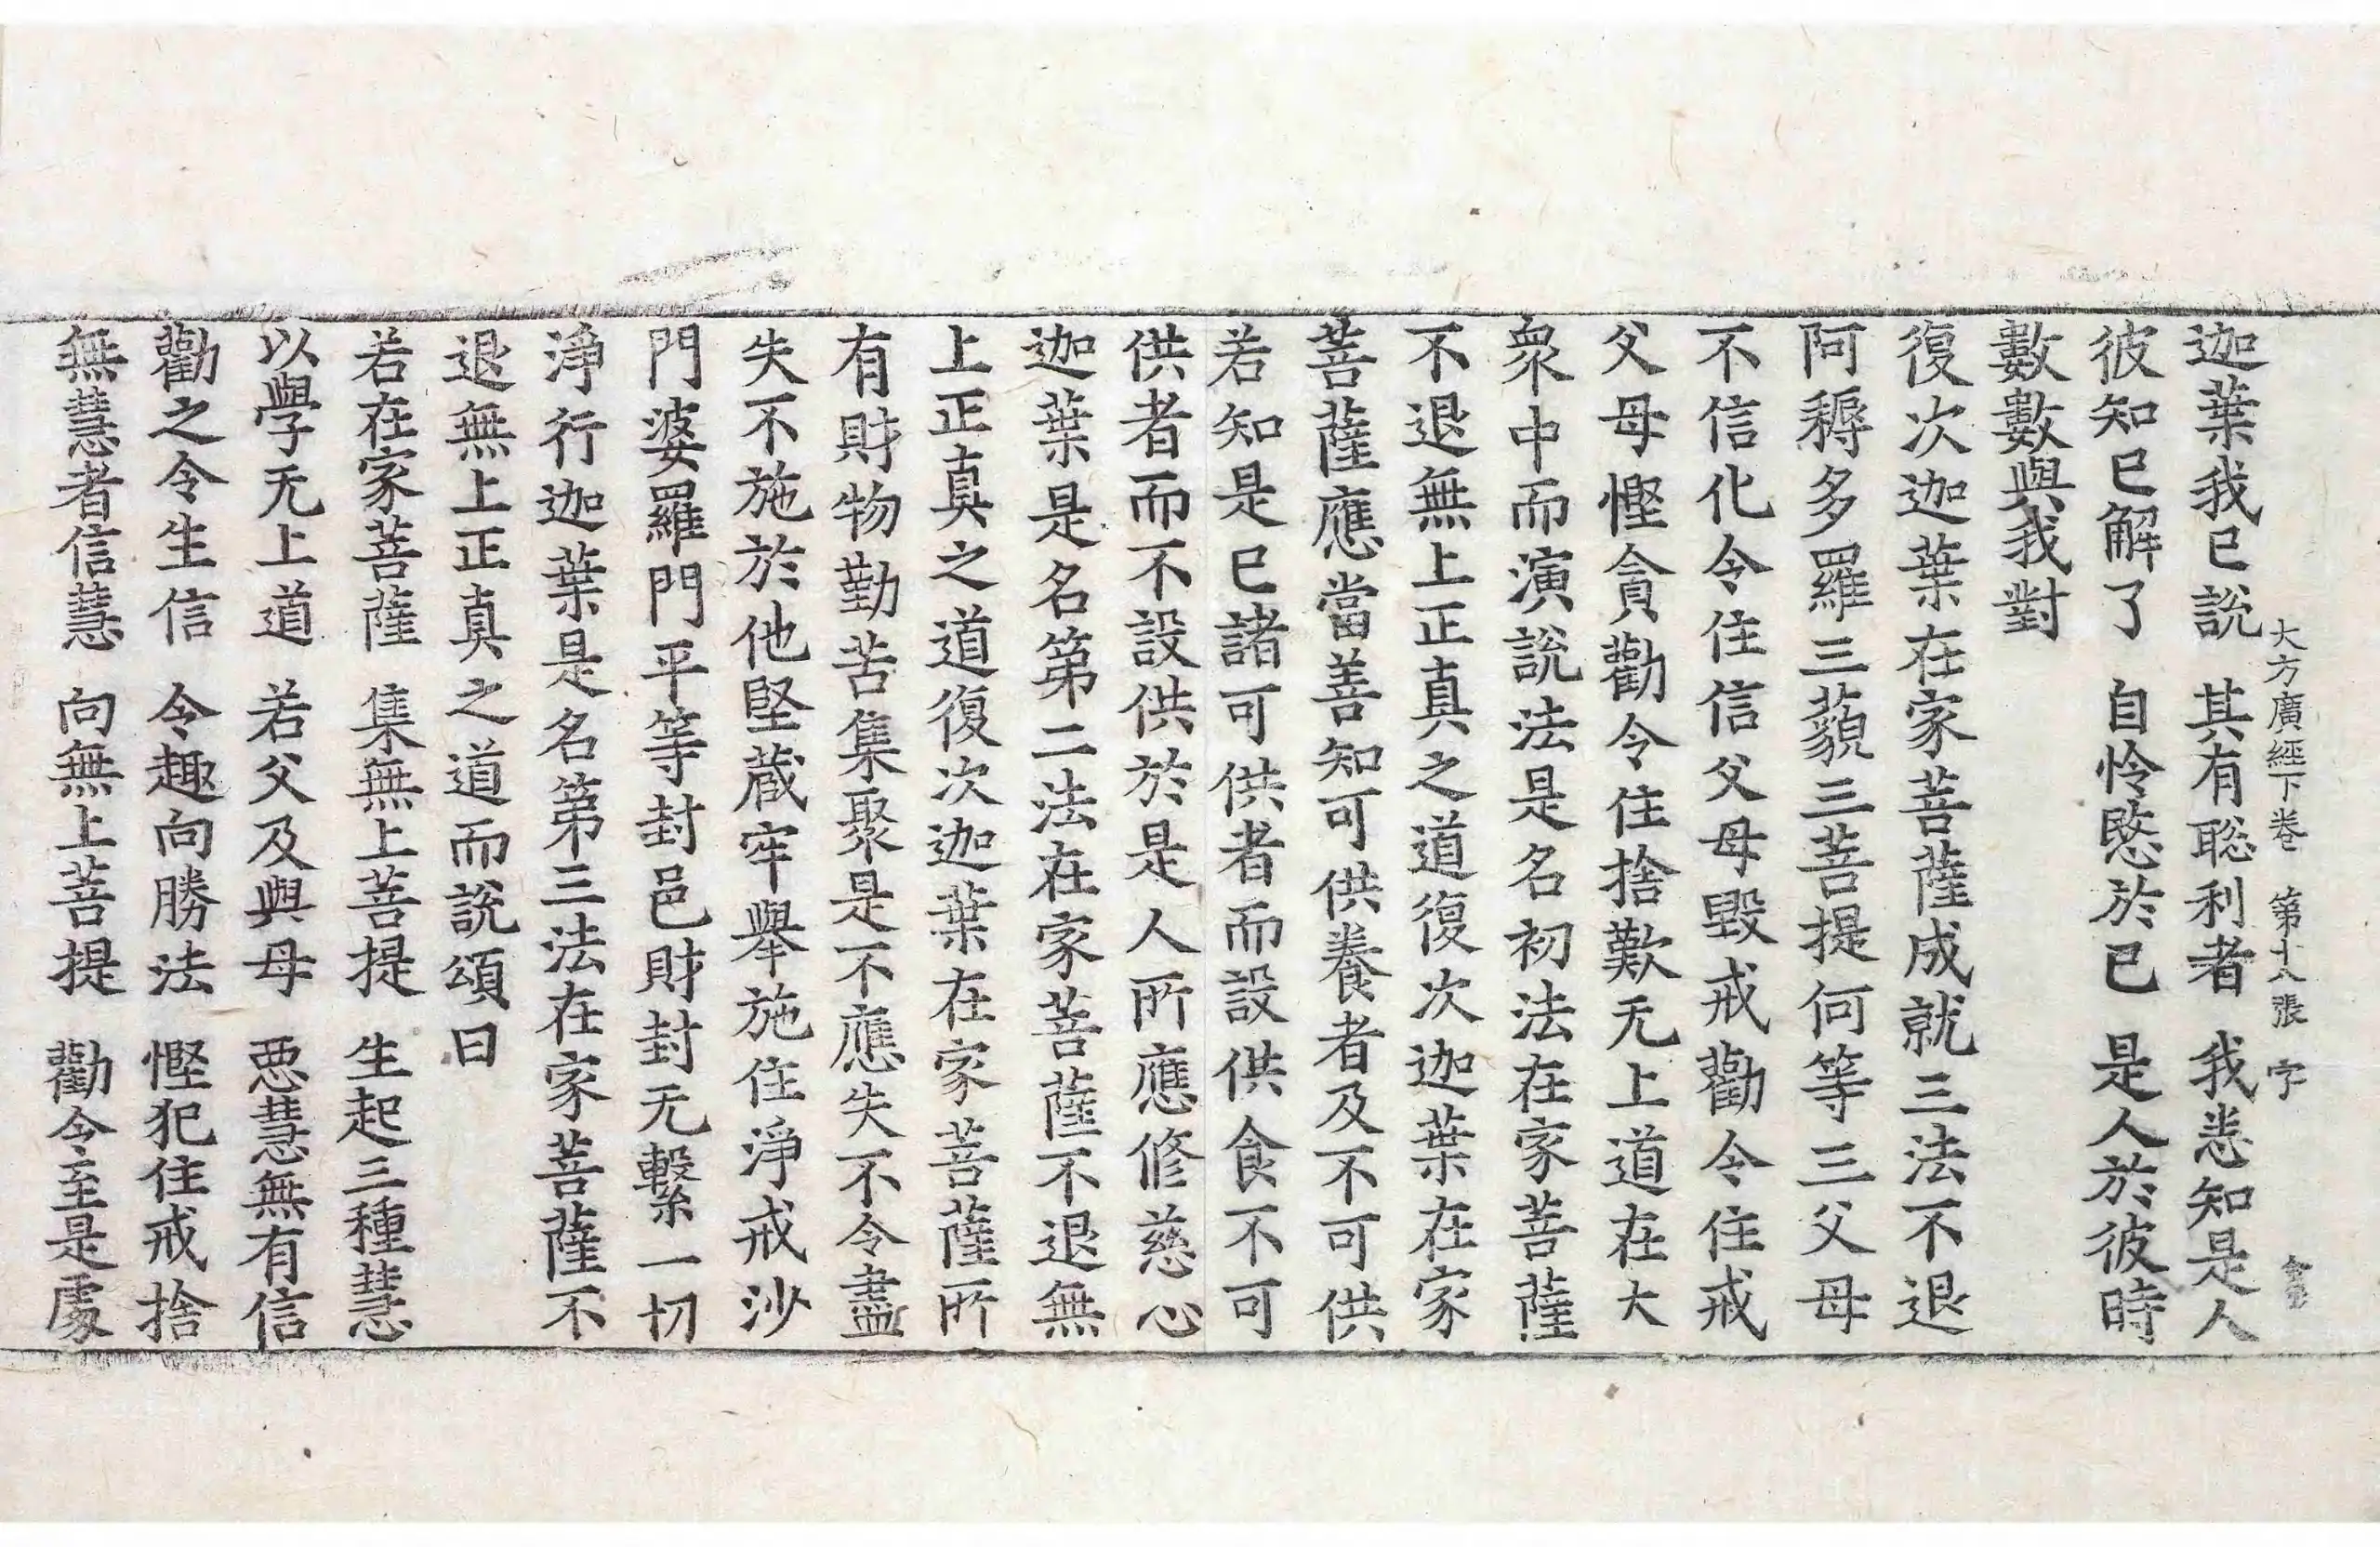 大方廣經下卷 第十八張 字
迦葉我已說 其有聡利者 我悉知是人
彼知已解了 自怜愍於已 是人於彼時
數數與我對
復次迦葉在家菩薩成就三法不退
阿耨多羅三藐三菩提何等三父母
不信化令住信父母毀戒勸令住戒
父母慳貪勸令住捨歎无上道在大
衆中而演說法是名初法在家菩薩
不退無上正真之道復次迦葉在家
菩薩應當善知可供養者及不可供
若知是已諸可供者而設供食不可
供者而不設供於是人所應修慈心
迦葉是名第二法在家菩薩不退無
上正真之道復次迦葉在家菩薩所
有財物勤苦集聚是不應失不令盡
失不施於他堅蔵牢舉施住淨戒沙
門婆羅門平等封邑財封无繫一切
淨行迦葉是名第三法在家菩薩不
退無上正真之道而說頌曰
若在家菩薩 集無上菩提 生起三種慧
以學无上道 若父及與母 惡慧無有信
勸之令生信 令趣向勝法 慳犯住戒捨
無慧者信慧 向無上菩提 勸令至是處